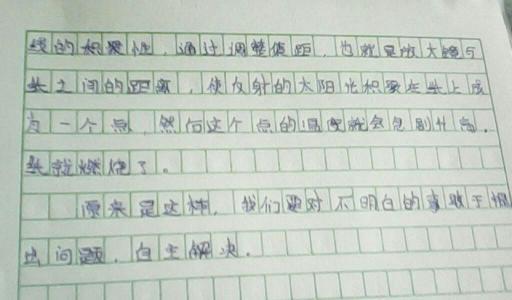 线的积聚性，通过调整焦距，也就是放大镜与
尘土间的距离，使反射的太阳光积聚在尘上成
为一个点，然后这个点的温度就会急剧升高，
就燃烧了。
原来是这样，我们要对不明白的事敢于提
出问题，自主解决。